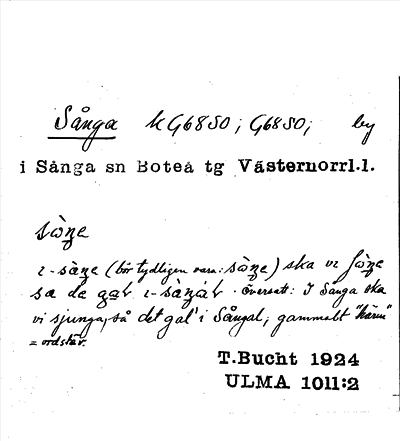 Sånga kG68SO; G68SO; by
i Sånga sn Boteå tg Västernorrl.l.
sàŋe
i-sàŋe (bör tydligen vara: sàŋe) ska vi
sa de i- · Översatt: I Sånga ska
vi sjunga, så det gal' i Sångal, gammalt
= ordstäv.
T.Bucht 1924
ULMA 1011:2